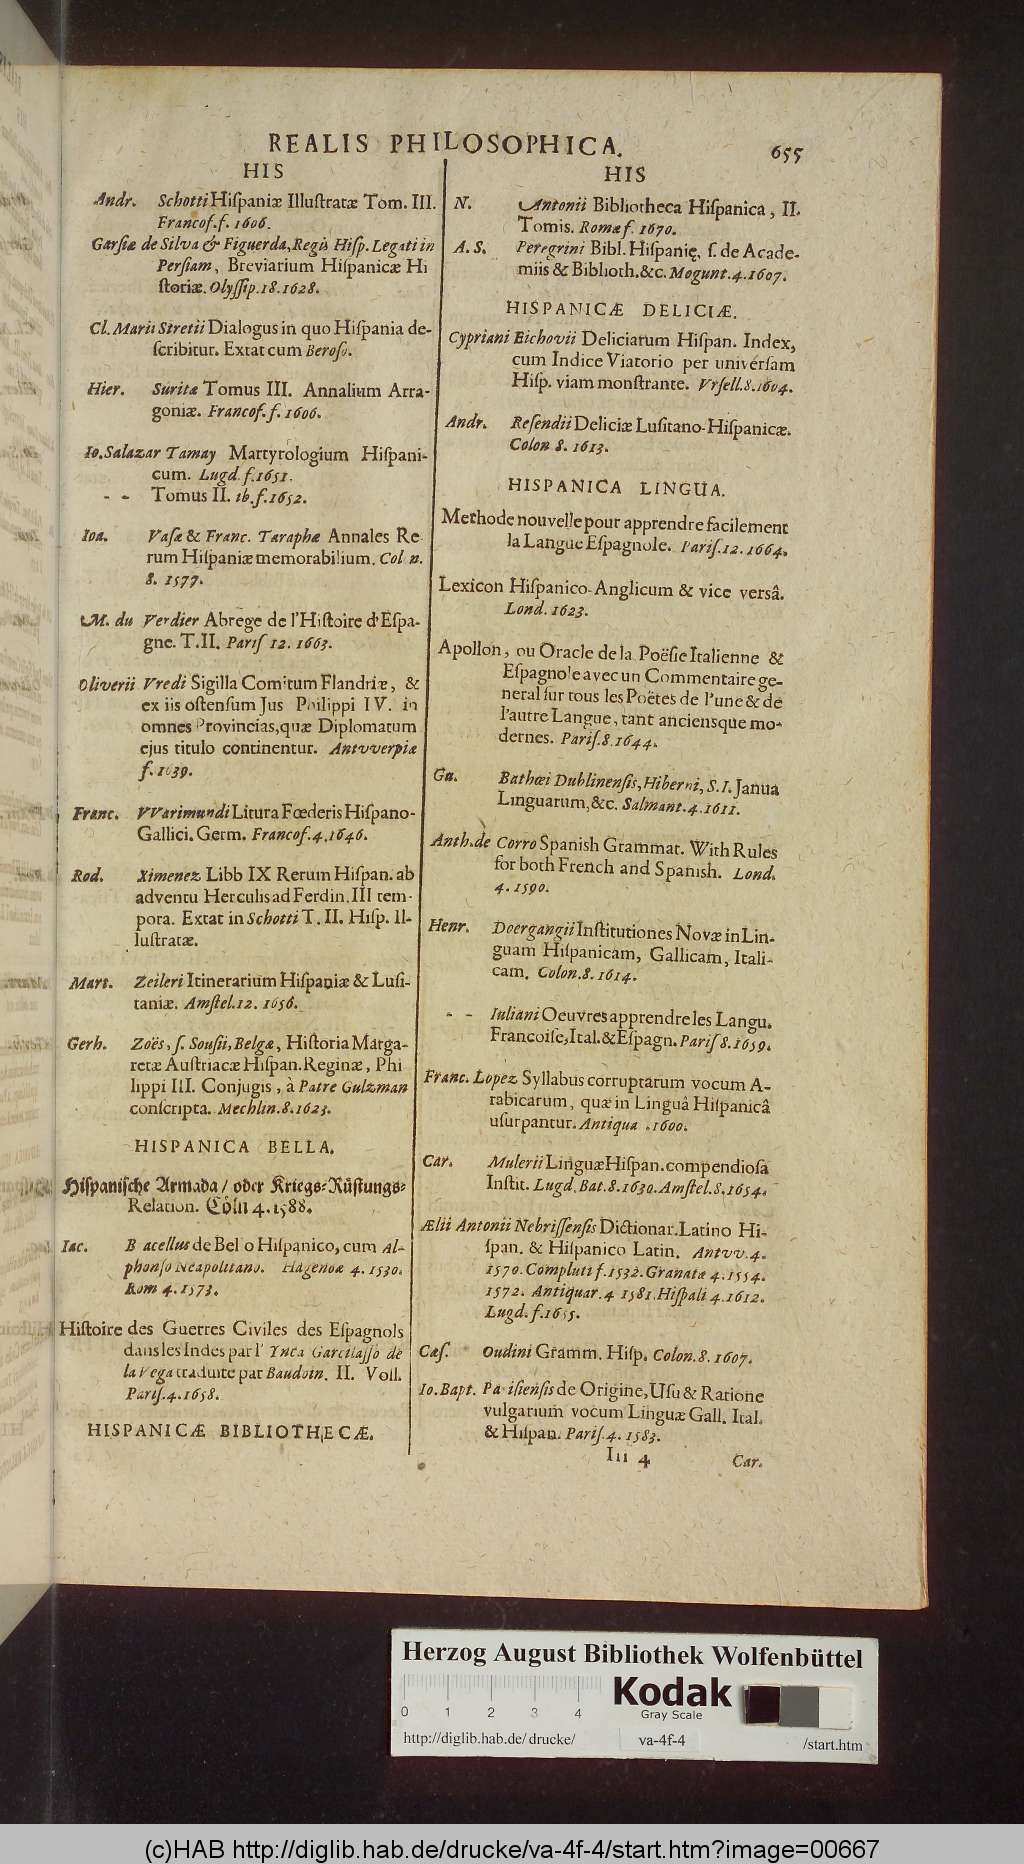 REALIS PHILOSOPHICA.
655
HIS
Andr. Schotti Hiſpaniæ Illuſtratæ Tom. III.
Francof.f. 1606.
Garſiæ de Silva & Figuerda, Regis Hiſp. Legati in
Perſiam, Breviarium Hiſpanicæ Hi
ſtoriæ. Olyſſip. 18. 1628.
Cl. Marii Siretii Dialogus in quo Hiſpania de-
ſcribitur. Extat cum Beroſo.
Hier. Suritæ Tomus III. Annalium Arra-
goniæ. Francof. f. 1606.
Io. Salazar Tamay Martyrologium Hiſpani-
cum. Lugd. f. 1651.
- - Tomus II. ib. f. 1652.
Ioa. Vaſæ & Franc. Taraphæ Annales Re
rum Hiſpaniæ memorabilium. Col n.
8. 1577.
M. du Verdier Abrege de l'Hiſtoire d'Eſpa-
gne. T. II. Pariſ 12. 1663.
Oliverii Vredi Sigilla Comitum Flandriæ, &
ex iis oſtenſum Jus Philippi IV. in
omnes Provincias, quæ Diplomatum
ejus titulo continentur. Antvverpiæ
f. 1639.
Franc. VVarimundi Litura Fœderis Hiſpano-
Gallici. Germ. Francof. 4. 1646.
Rod. Ximenez Libb IX Rerum Hiſpan. ab
adventu Herculis ad Ferdin. III tem-
pora. Extat in Schotti T. II. Hiſp. Il-
luſtratæ.
Mart. Zeileri Itinerarium Hiſpaniæ & Luſi-
taniæ. Amſtel. 12. 1656.
Gerh. Zoës, ſ. Souſii, Belgæ, Hiſtoria Marga-
retæ Auſtriacæ Hiſpan. Reginæ, Phi
lippi III. Conjugis, à Patre Gulzman
conſcripta. Mechlin. 8. 1623.
HISPANICA BELLA.
Hiſpaniſche Armada / oder Kriegs-Rüſtungs-
Relation. Cöln 4. 1588.
Iac. B acellus de Bel o Hiſpanico, cum Al-
phonſo Neapolitano. Hagenoæ 4. 1530.
Rom 4. 1573.
Hiſtoire des Guerres Civiles des Eſpagnols
dans les Indes par l' Ynca Garcilaſſo de
la Vega traduite par Baudoin. II. Voll.
Pariſ. 4. 1658.
HISPANICÆ BIBLIOTHECÆ.
HIS
N. Antonii Bibliotheca Hiſpanica, II.
Tomis. Romæ f. 1670.
A. S. Peregrini Bibl. Hiſpanię, ſ. de Acade-
miis & Biblioth. &c. Mogunt. 4. 1607.
HISPANICÆ DELICIÆ.
Cypriani Eichovii Deliciarum Hiſpan. Index,
cum Indice Viatorio per univerſam
Hiſp. viam monſtrante. Vrſell. 8. 1604.
Andr. Reſendii Deliciæ Luſitano-Hiſpanicæ.
Colon 8. 1613.
HISPANICA LINGUA.
Methode nouvelle pour apprendre facilement
la Langue Eſpagnole. Pariſ. 12. 1664.
Lexicon Hiſpanico-Anglicum & vice versâ.
Lond. 1623.
Apollon, ou Oracle de la Poëſie Italienne &
Eſpagnole avec un Commentaire ge-
neral ſur tous les Poëtes de l'une & de
l'autre Langue, tant anciens que mo-
dernes. Pariſ. 8. 1644.
Ga. Bathœi Dublinenſis, Hiberni, S. I. Janua
Linguarum, &c. Salmant. 4. 1611.
Anth. de Corro Spanish Grammat. With Rules
for both French and Spanish. Lond.
4. 1590.
Henr. Doergangii Inſtitutiones Novæ in Lin-
guam Hiſpanicam, Gallicam, Itali-
cam. Colon. 8. 1614.
- - Iuliani Oeuvres apprendre les Langu.
Francoiſe, Ital. & Eſpagn. Pariſ 8. 1659.
Franc. Lopez Syllabus corruptarum vocum A-
rabicarum, quæ in Linguâ Hiſpanicâ
uſurpantur. Antiqua . 1600.
Car. Mulerii Linguæ Hiſpan. compendioſa
Inſtit. Lugd. Bat. 8. 1630. Amſtel. 8. 1654.
Ælii Antonii Nebriſſenſis Dictionar. Latino Hi-
ſpan. & Hiſpanico Latin. Antvv. 4.
1570. Compluti f. 1532. Granatæ 4. 1554.
1572. Antiquar. 4 1581. Hiſpali 4. 1612.
Lugd. f. 1655.
Cæſ. Oudini Gramm. Hiſp. Colon. 8. 1607.
Io. Bapt. Pa iſienſis de Origine, Uſu & Ratione
vulgarium vocum Linguæ Gall. Ital.
& Hiſpan. Pariſ. 4. 1583.
Iii 4
Car.
Herzog August Bibliothek Wolfenbüttel
0 1 2 3 4
Kodak
Gray Scale
http://diglib.hab.de/drucke/
va-4f-4
/start.htm
(c)HAB http://diglib.hab.de/drucke/va-4f-4/start.htm?image=00667